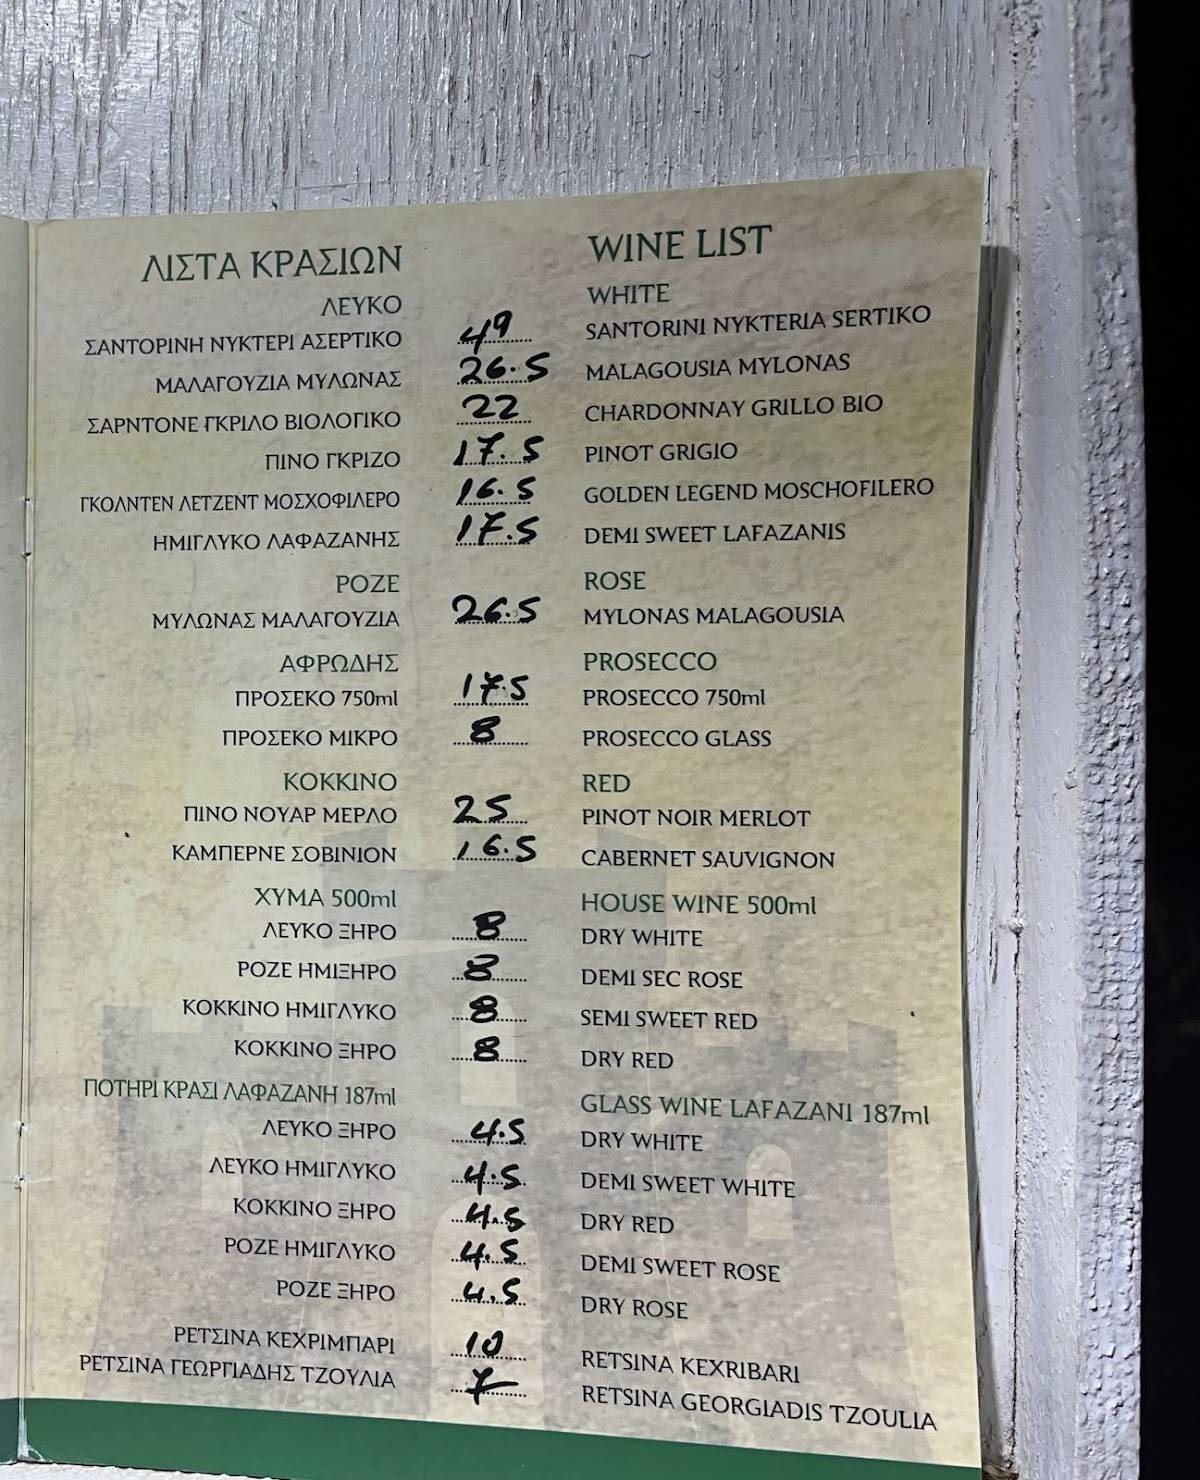 ΛΙΣΤΑ ΚΡΑΣΙΩΝ WINE LIST
ΛΕΥΚΟ WHITE
ΣΑΝΤΟΡΙΝΗ ΝΥΚΤΕΡΙ ΑΣΕΡΤΙΚΟ 49 SANTORINI NYKTERIA SERTIKO
ΜΑΛΑΓΟΥΖΙΑ ΜΥΛΩΝΑΣ 26.5 MALAGOUSIA MYLONAS
ΣΑΡΝΤΟΝΕ ΓΚΡΙΛΟ ΒΙΟΛΟΓΙΚΟ 22 CHARDONNAY GRILLO BIO
ΠΙΝΟ ΓΚΡΙΖΟ 17.5 PINOT GRIGIO
ΓΚΟΛΝΤΕΝ ΛΕΤΖΕΝΤ ΜΟΣΧΟΦΙΛΕΡΟ 16.5 GOLDEN LEGEND MOSCHOFILERO
ΗΜΙΓΛΥΚΟ ΛΑΦΑΖΑΝΗΣ 17.5 DEMI SWEET LAFAZANIS
ΡΟΖΕ ROSE
ΜΥΛΩΝΑΣ ΜΑΛΑΓΟΥΖΙΑ 26.5 MYLONAS MALAGOUSIA
ΑΦΡΩΔΗΣ PROSECCO
ΠΡΟΣΕΚΟ 750ml 17.5 PROSECCO 750ml
ΠΡΟΣΕΚΟ ΜΙΚΡΟ 8 PROSECCO GLASS
ΚΟΚΚΙΝΟ RED
ΠΙΝΟ ΝΟΥΑΡ ΜΕΡΛΟ 25 PINOT NOIR MERLOT
ΚΑΜΠΕΡΝΕ ΣΟΒΙΝΙΟΝ 16.5 CABERNET SAUVIGNON
ΧΥΜΑ 500ml HOUSE WINE 500ml
ΛΕΥΚΟ ΞΗΡΟ 8 DRY WHITE
ΡΟΖΕ ΗΜΙΞΗΡΟ 8 DEMI SEC ROSE
ΚΟΚΚΙΝΟ ΗΜΙΓΛΥΚΟ 8 SEMI SWEET RED
ΚΟΚΚΙΝΟ ΞΗΡΟ 8 DRY RED
ΠΟΤΗΡΙ ΚΡΑΣΙ ΛΑΦΑΖΑΝΗ 187ml GLASS WINE LAFAZANI 187ml
ΛΕΥΚΟ ΞΗΡΟ 4.5 DRY WHITE
ΛΕΥΚΟ ΗΜΙΓΛΥΚΟ 4.5 DEMI SWEET WHITE
ΚΟΚΚΙΝΟ ΞΗΡΟ 4.5 DRY RED
ΡΟΖΕ ΗΜΙΓΛΥΚΟ 4.5 DEMI SWEET ROSE
ΡΟΖΕ ΞΗΡΟ 4.5 DRY ROSE
ΡΕΤΣΙΝΑ ΚΕΧΡΙΜΠΑΡΙ 10 RETSINA KEXRIBARI
ΡΕΤΣΙΝΑ ΓΕΩΡΓΙΑΔΗΣ ΤΖΟΥΛΙΑ 7 RETSINA GEORGIADIS TZOULIA